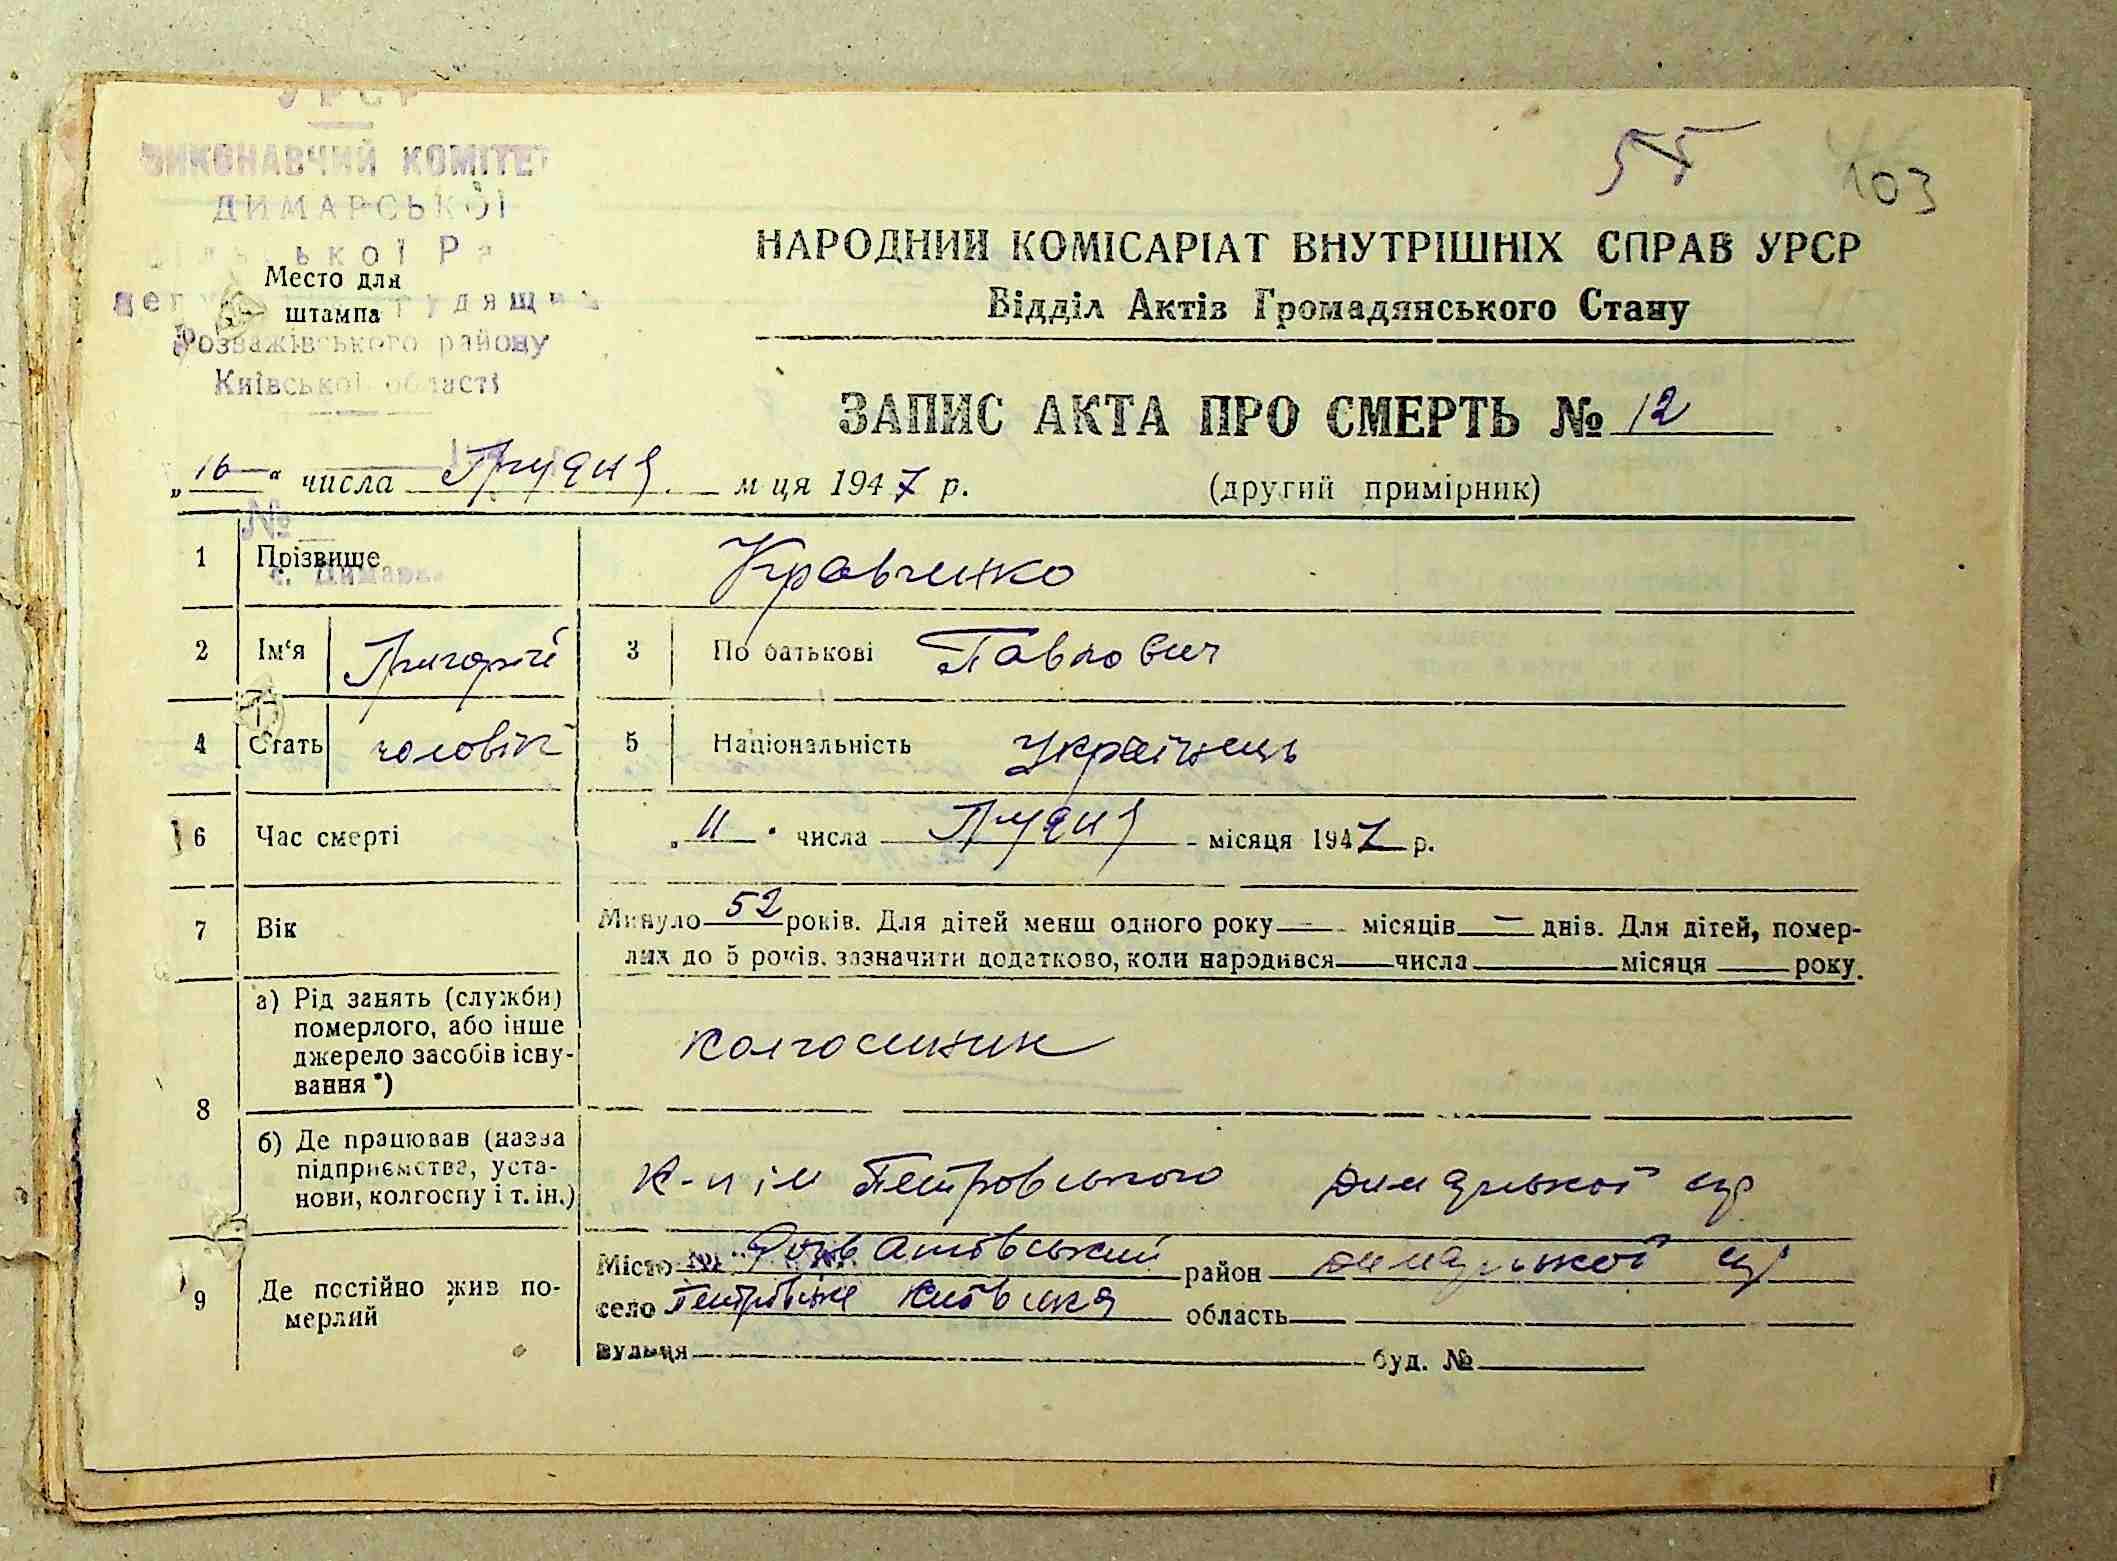 УРСР
ВИКОНАВЧИЙ КОМІТЕТ
ДИМАРСЬКОЇ
Місто для
штампа
Розважівського району
Київської області
№
с. Димарка
55
103
НАРОДНИЙ КОМІСАРІАТ ВНУТРІШНІХ СПРАВ УРСР
Відділ Актів Громадянського Стану
ЗАПИС АКТА ПРО СМЕРТЬ № 12
„16“ числа Грудня м-ця 1947 р. (другий примірник)
1 Прізвище Кравченко
2 Ім‘я Григорій 3 По батькові Павлович
4 Стать чоловік 5 Національність Українець
6 Час смерті „11“ числа Грудня місяця 1947 р.
7 Вік Минуло 52 років. Для дітей менш одного року — місяців — днів. Для дітей, помер-
лих до 5 років, зазначити додатково, коли народився — числа — місяця — року.
8 а) Рід занять (служби)
померлого, або інше
джерело засобів існу-
вання *)
колгоспник
б) Де працював (назва
підприємства, уста-
нови, колгоспу і т. ін.)
к-п ім Петровського
9 Де постійно жив по-
мерлий
Місто район
село Петрівське Київська область
вулиця буд. №